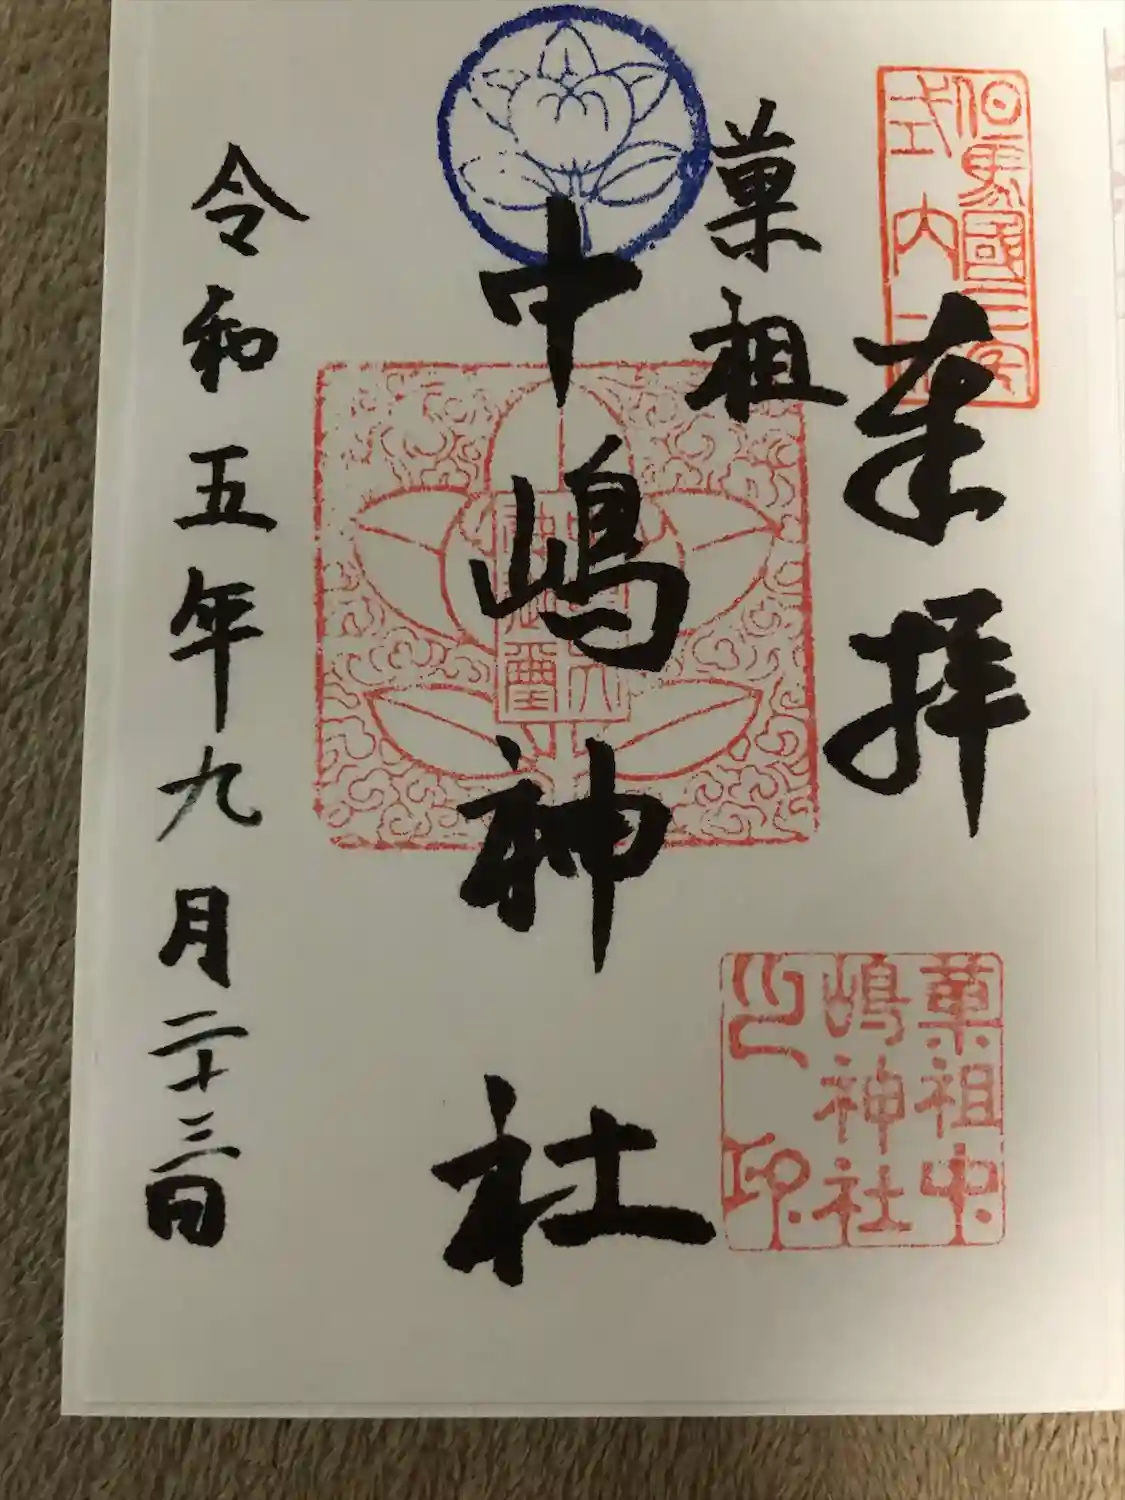 奉拝
菓祖
中嶋神社
令和五年九月二十三日
但馬國二宮
式内
菓祖中
嶋神社
之印